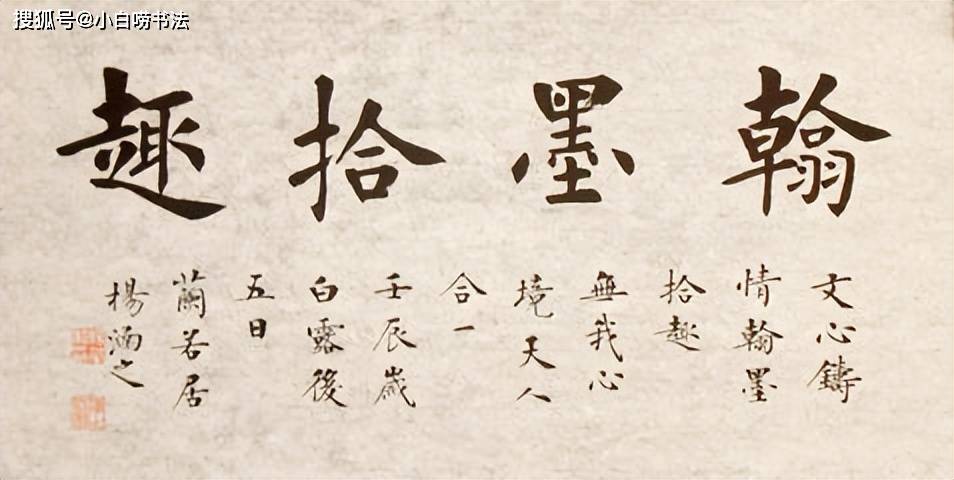 搜狐号@小白唠书法
翰墨拾趣
文心鑄
情翰墨
拾趣
無我心
境天人
合一
壬辰歲
白露後
五日
蘭若居
楊涵之